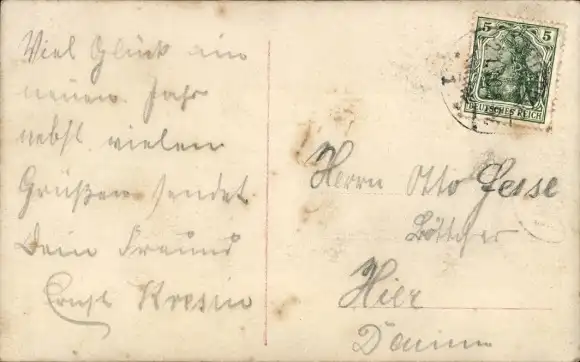 Viel Glück im
neuen Jahr
nebst vielen
Grüßen sendet
Dein Freund
Ernst Kresin
5 5
DEUTSCHES REICH
Herrn Otto Jesse
Böttcher
Hier